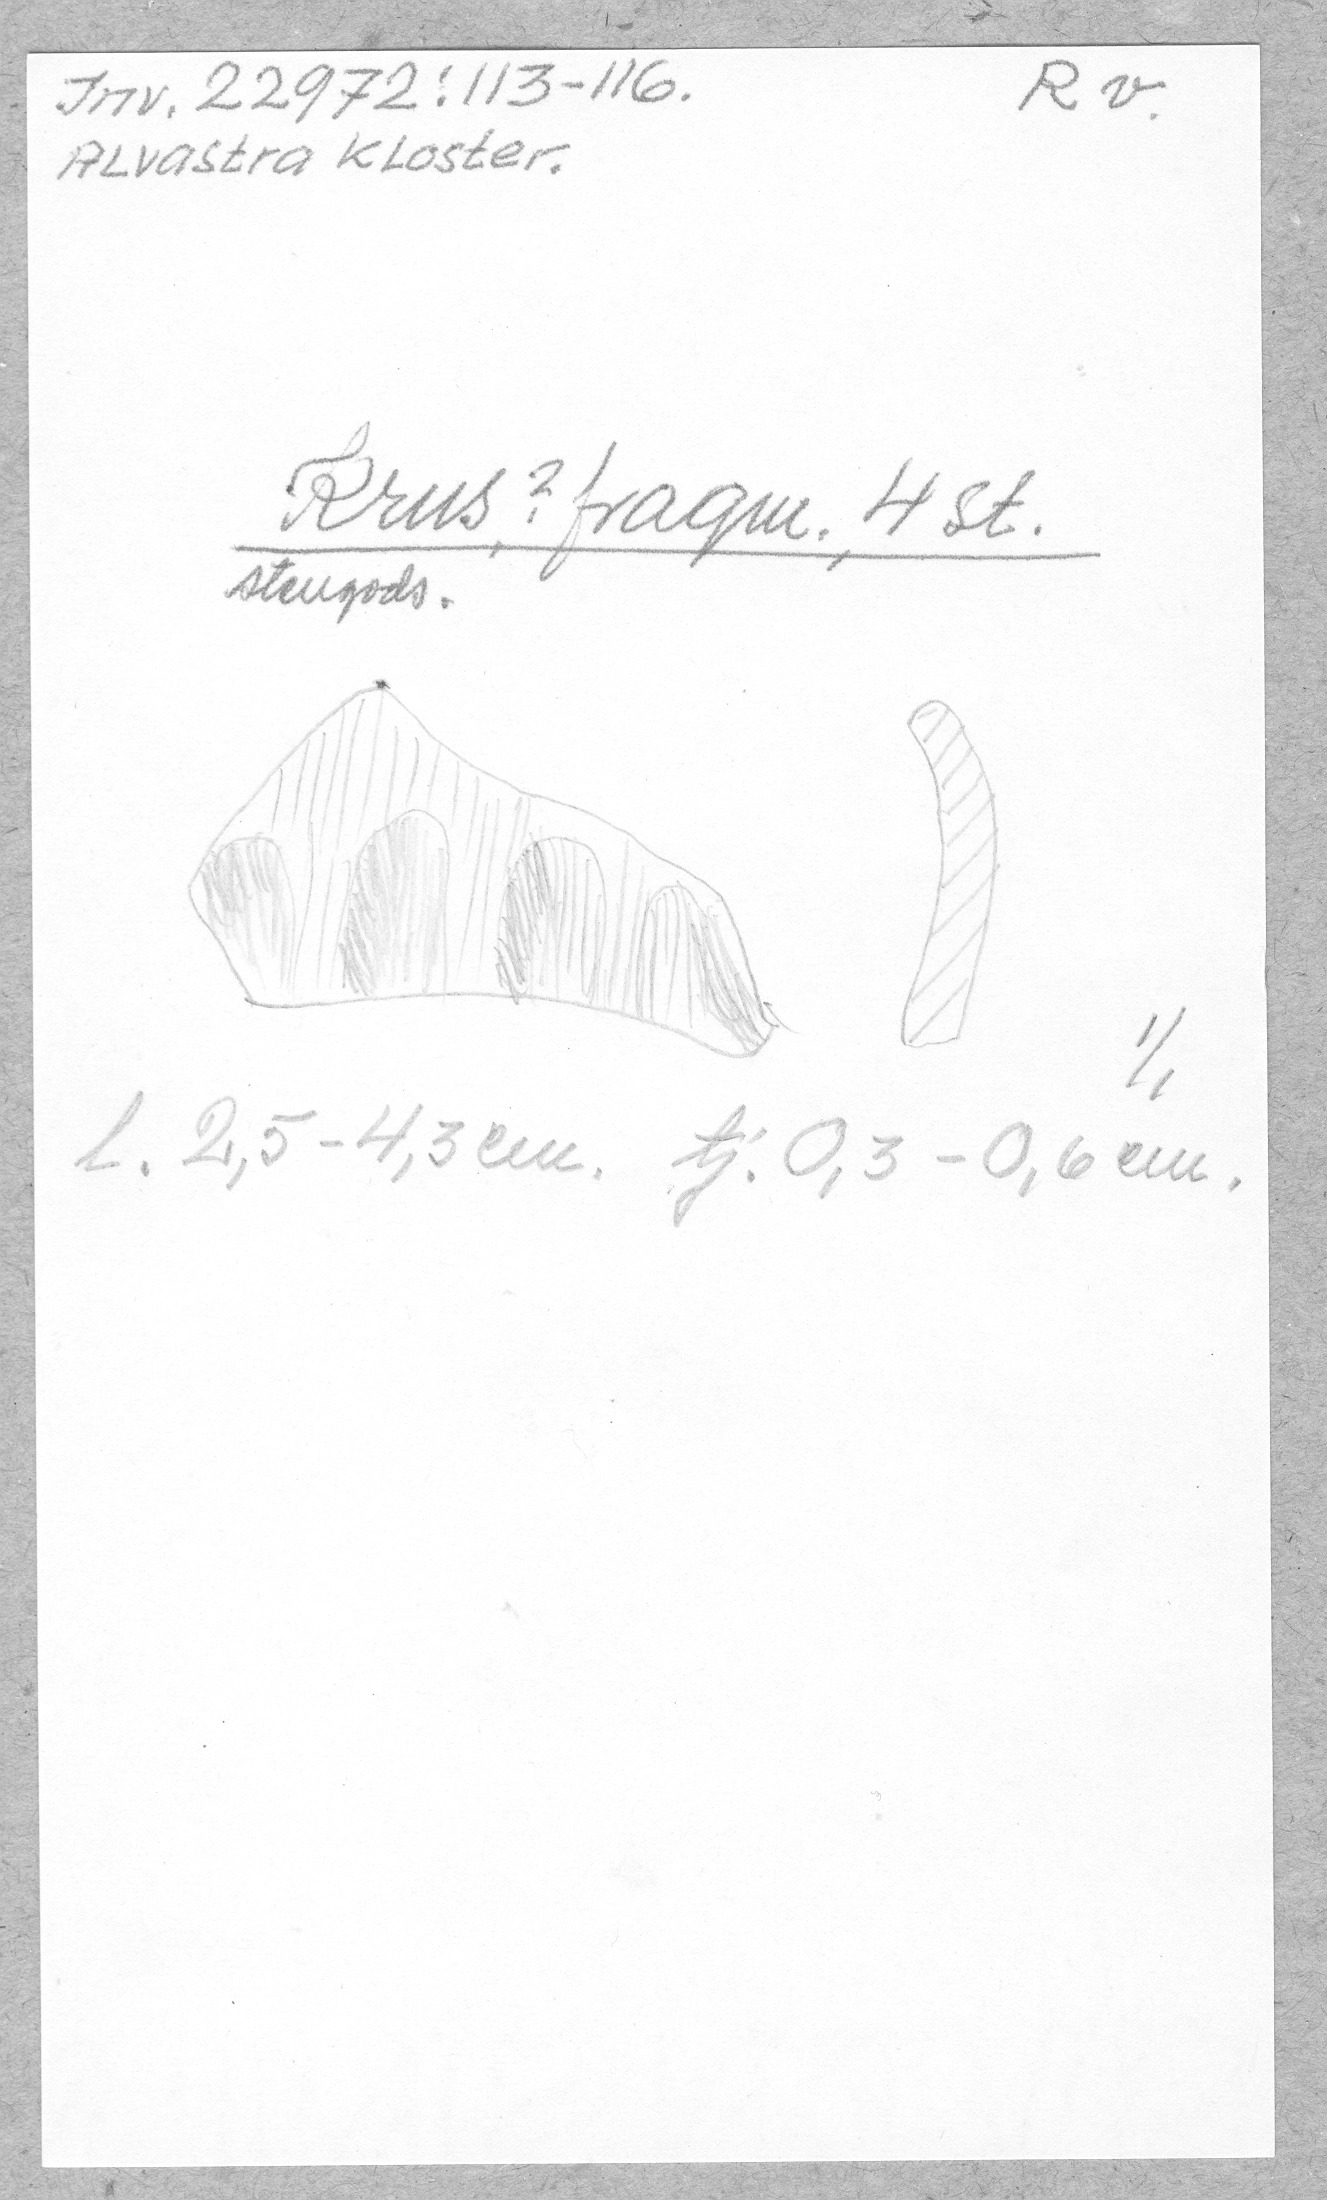 Inv. 22972:113-116. R v.
Alvastra Kloster.
Krus,? fragm., 4 st.
stengods.
1/1
l. 2,5-4,3 cm. tj. 0,3-0,6 cm.